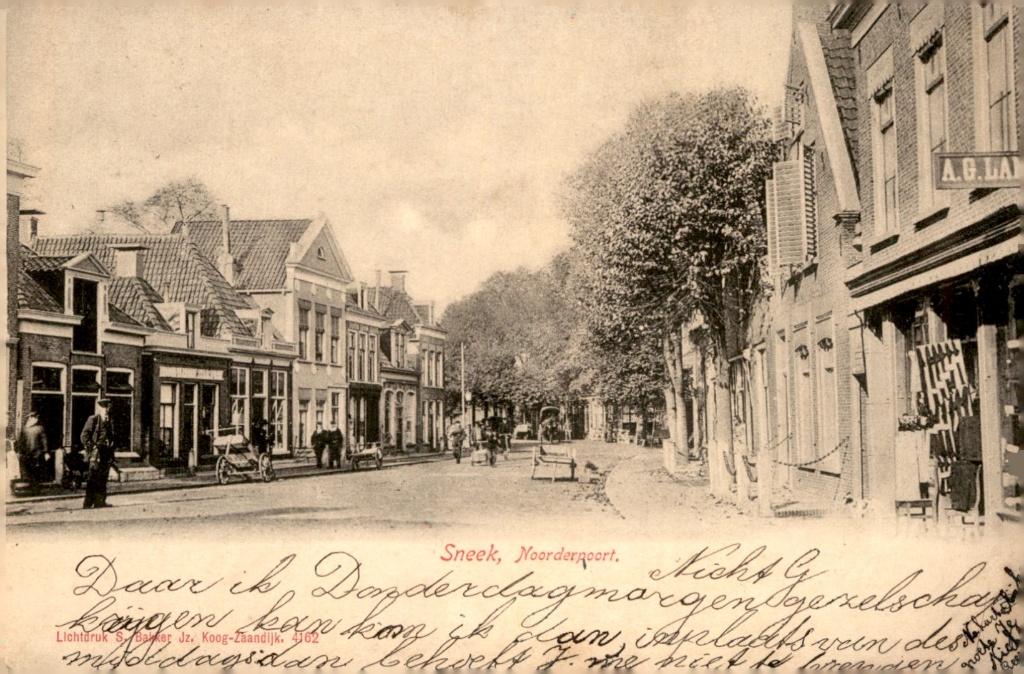 A.G. LA
Sneek, Noorderpoort.
Nicht G
Daar ik Donderdagmorgen gezelscha
krijgen kan kom ik dan, inplaats van des
Lichtdruk S. Bakker Jz. Koog-Zaandijk. 4162
middags dan behoeft J me niet te